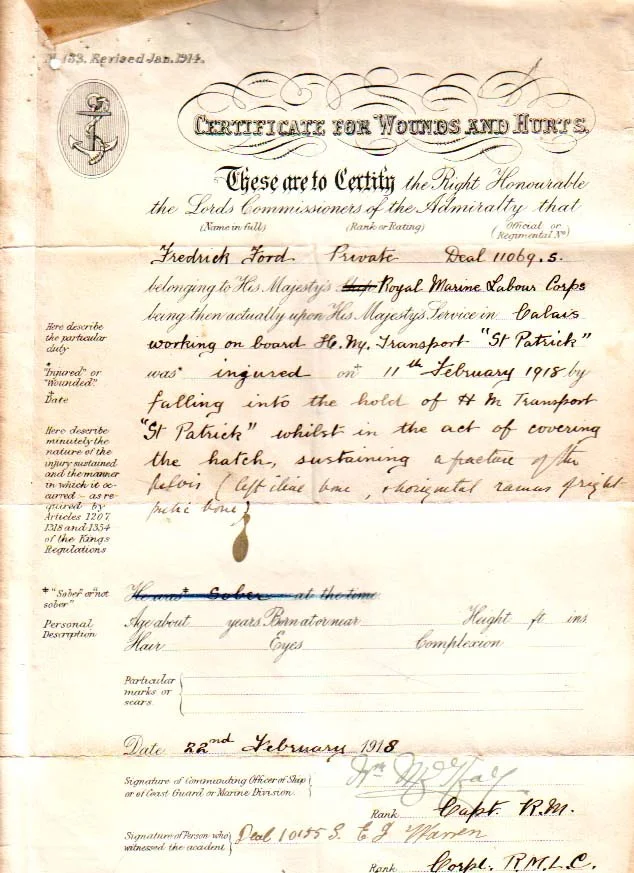 133. Revised Jan. 1914.
CERTIFICATE FOR WOUNDS AND HURTS.
These are to Certify the Right Honourable
the Lords Commissioners of the Admiralty that
(Name in full) (Rank or Rating) (Official or Regimental No)
Fredrick Ford Private Deal 11069.S.
belonging to His Majesty's Ship Royal Marine Labour Corps
being then actually upon His Majesty's Service in Calais
Here describe
the particular
duty
working on board H.M. Transport "St Patrick"
*"Injured" or
"Wounded."
†Date
was* injured on† 11th February 1918 by
falling into the hold of H M Transport
Here describe
minutely the
nature of the
injury sustained
and the manner
in which it oc-
curred – as re-
quired by
Articles 1207,
1318 and 1354
of the Kings
Regulations
"St Patrick" whilst in the act of covering
the hatch, sustaining a fracture of the
pelvis (left iliac bone, & horizontal ramus of right
pubic bone)
*"Sober" or "not
sober"
He was* Sober at the time
Personal
Description
Age about years Born at or near Height ft ins
Hair Eyes Complexion
Particular
marks or
scars.
Date 22nd February 1918
Signature of Commanding Officer of Ship
or of Coast Guard or Marine Division.
Wm McKay
Rank Capt. R.M.
Signature of Person who
witnessed the accident
Deal 10155 S. E J Warren
Rank Corpl. R.M.L.C.